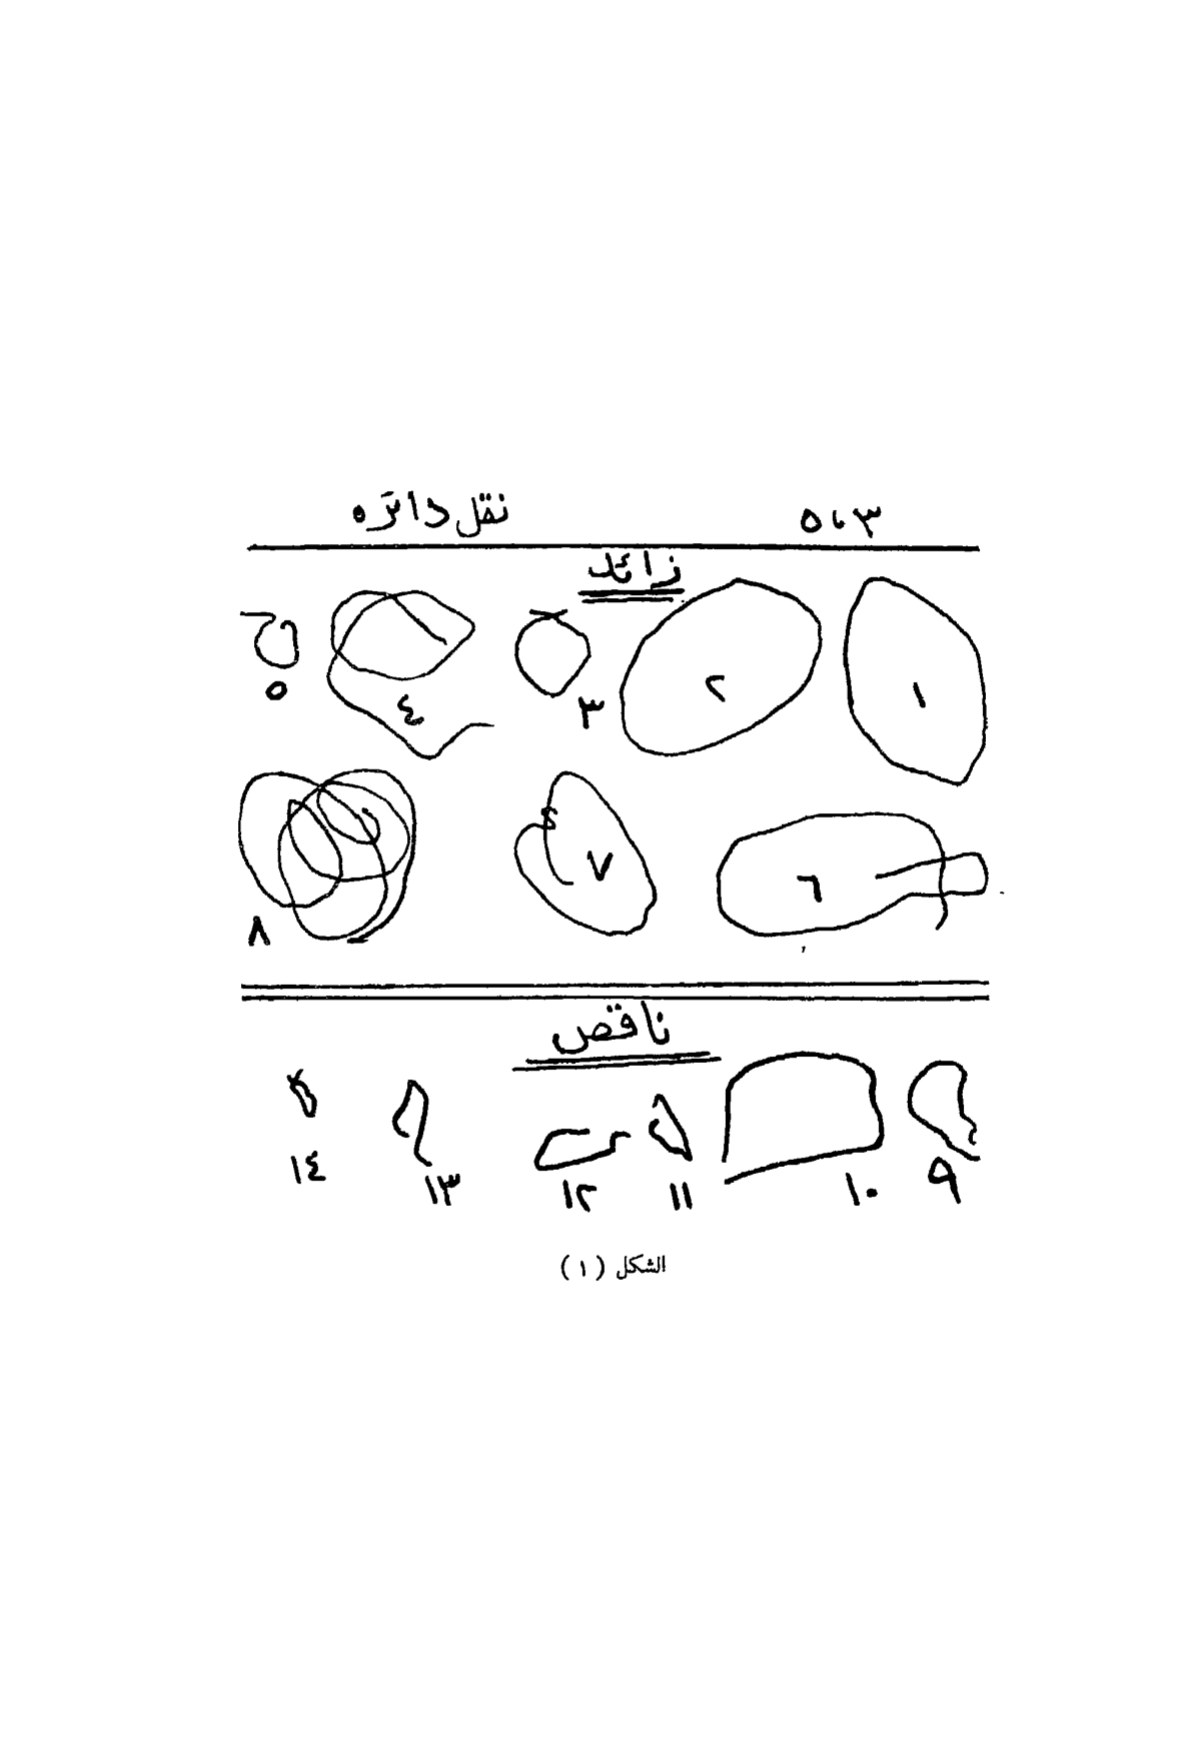 ٥،٣ نقل دائره
زائد
١ ٢ ٣ ٤ ٥
٦ ٧ ٨
ناقص
٩ ١٠ ١١ ١٢ ١٣ ١٤
الشكل ( ١ )